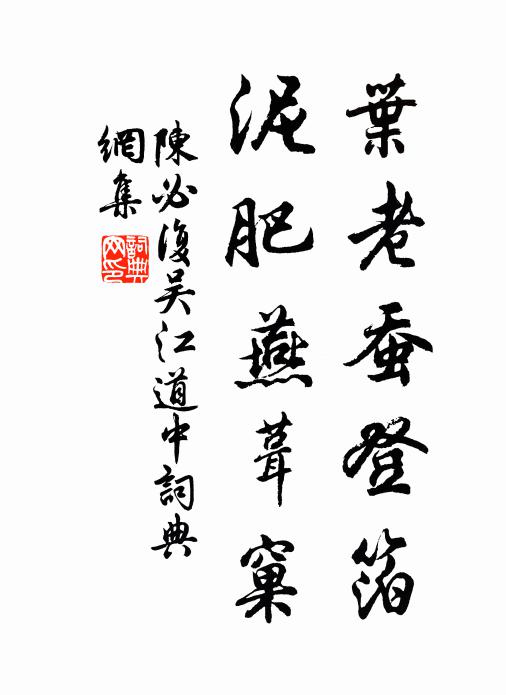 葉老蚕登箔
泥肥燕葺窠
陳必復吴江道中詞典
網集
詞典
网印